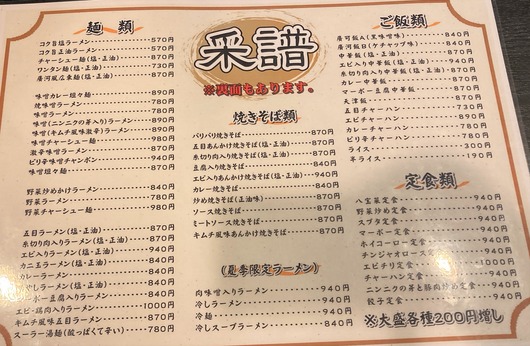 采譜
※裏面もあります。
麺類
コク旨塩ラーメン 570円
コク旨正油ラーメン 570円
チャーシュー麺(塩・正油) 870円
ワンタン麺(塩・正油) 870円
唐河風広東麺(塩・正油) 890円
味噌カレー坦々麺 890円
焼味噌ラーメン 780円
味噌ラーメン 780円
味噌(ニンニクの芽入り)ラーメン 890円
味噌(キムチ風味激辛)ラーメン 890円
味噌チャーシュー麺 980円
激辛味噌ラーメン 870円
ピリ辛味噌チャンポン 940円
味噌坦々麺 870円
野菜炒めかけラーメン 840円
野菜ラーメン 780円
野菜チャーシュー麺 980円
五目ラーメン(塩・正油) 840円
糸切り肉入りラーメン(塩・正油) 840円
エビ入りラーメン(塩・正油) 940円
カニ玉ラーメン(塩・正油) 840円
カレーラーメン 840円
マーボー豆腐入りラーメン 870円
エビ・鶏肉入りラーメン 1000円
キムチ風味五目ラーメン 870円
スーラー湯麺(酸っぱくて辛い) 780円
焼きそば類
パリパリ焼きそば 870円
五目あんかけ焼そば(塩・正油) 870円
糸切り肉入り焼そば(塩・正油) 870円
豆腐入り焼きそば 840円
エビ入りあんかけ焼そば(塩・正油) 940円
カレー焼きそば 840円
炒め焼きそば(正油味) 840円
ソース焼きそば 870円
ミートソース焼きそば 870円
キムチ風味あんかけ焼そば 870円
(夏季限定ラーメン)
肉味噌入りラーメン 940円
冷しラーメン 940円
冷麺 940円
冷しスープラーメン 840円
ご飯類
唐河飯A(黒味噌味) 840円
唐河飯B(ケチャップ味) 940円
中華飯(塩・正油) 840円
エビ入り中華飯(塩・正油) 940円
糸切り肉入り中華飯(塩・正油) 840円
カレー中華飯 870円
マーボー豆腐中華飯 870円
天津飯 870円
五目チャーハン 730円
エビチャーハン 890円
カレーチャーハン 780円
ピリ辛チャーハン 780円
ライス 300円
半ライス 190円
定食類
八宝菜定食 940円
野菜炒め定食 940円
スブタ定食 940円
マーボー定食 940円
ホイコーロー定食 940円
チンジャオロース定食 940円
エビチリ定食 1000円
チャーハン定食 940円
ニンニクの芽と豚肉炒め定食 940円
餃子定食 940円
※大盛各種200円増し